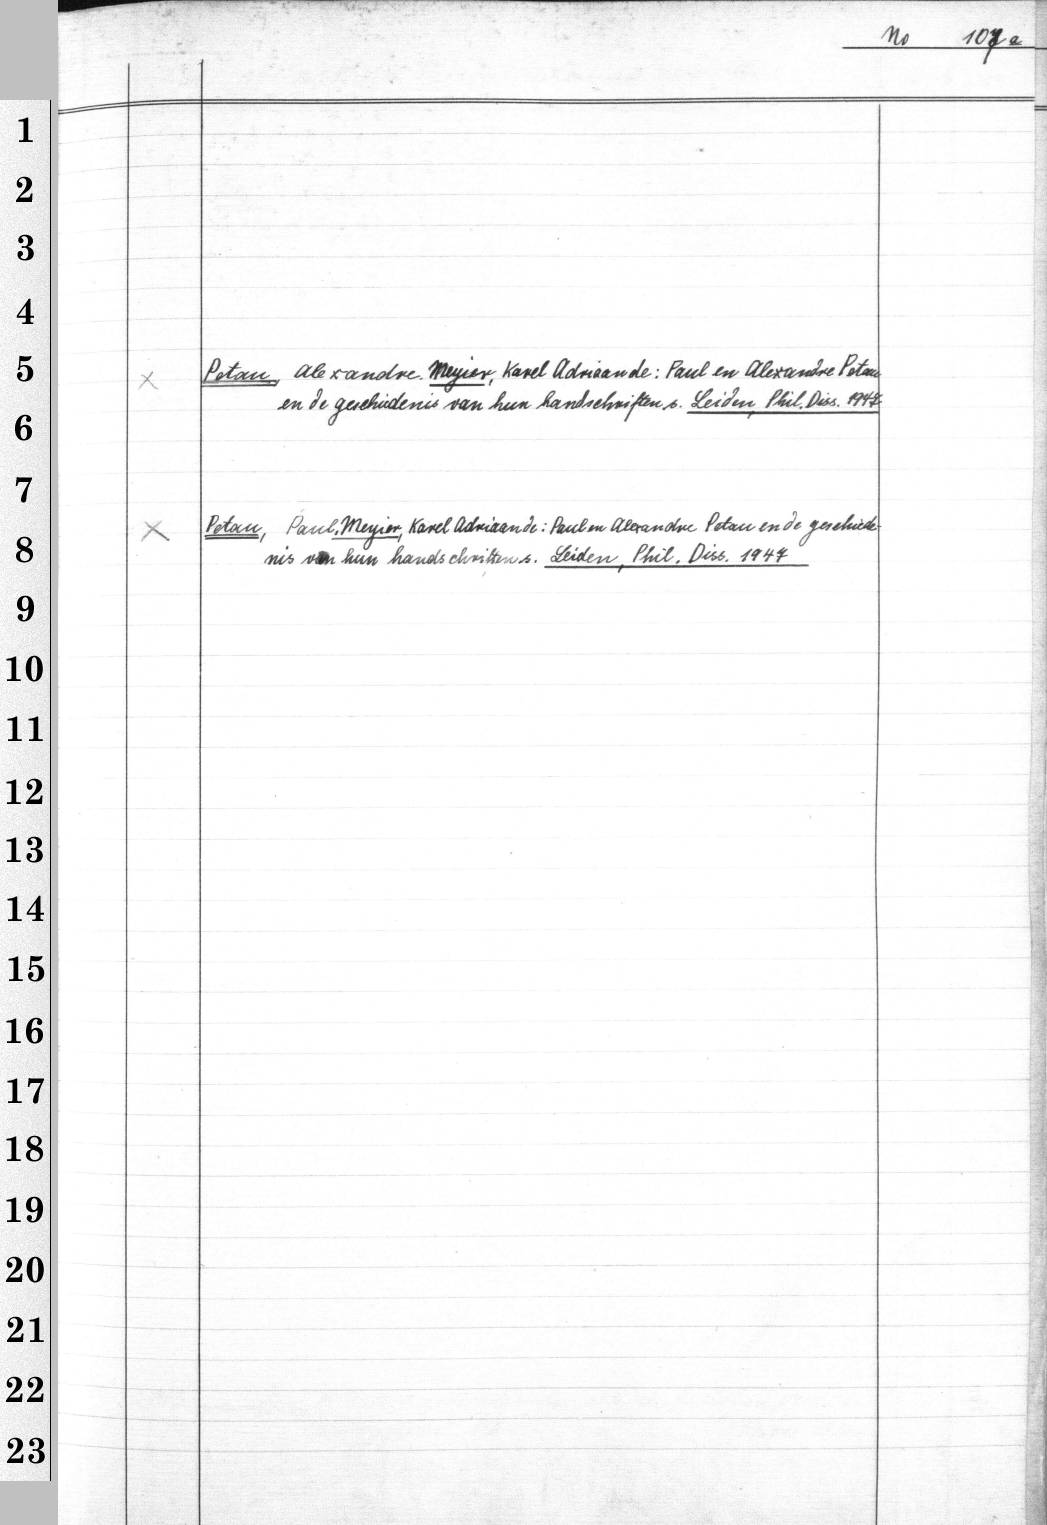 No 107a
1
2
3
4
5
Petau, Alexandre. Meyier, Karel Adriaan de: Paul en Alexandre Petau
en de geschiedenis van hun handschriften s. Leiden, Phil. Diss. 1947
6
7
8
Petau, Paul. Meyier, Karel Adriaan de: Paul en Alexandre Petau en de geschiede-
nis van hun handschriften s. Leiden, Phil. Diss. 1947
9
10
11
12
13
14
15
16
17
18
19
20
21
22
23